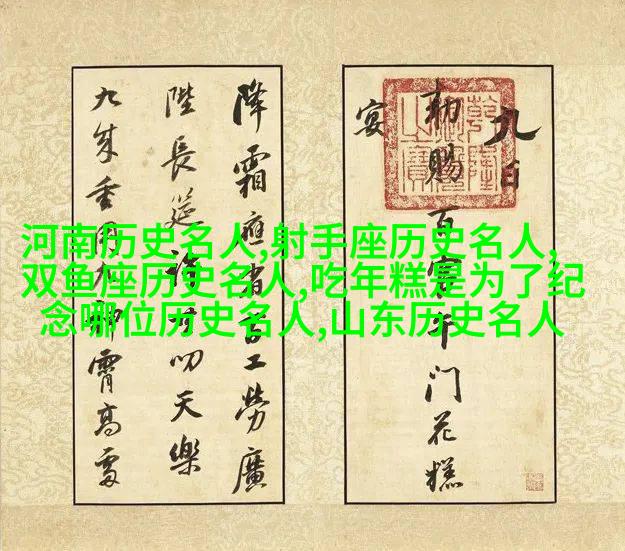 河南历史名人,射手座历史名人,
双鱼座历史名人,吃年糕是为了纪
念哪位历史名人,山东历史名人
九日
勅賜百官午門花糕
宴
降霜應省百工勞廣
陛長筵許叨天樂
九成重霄高